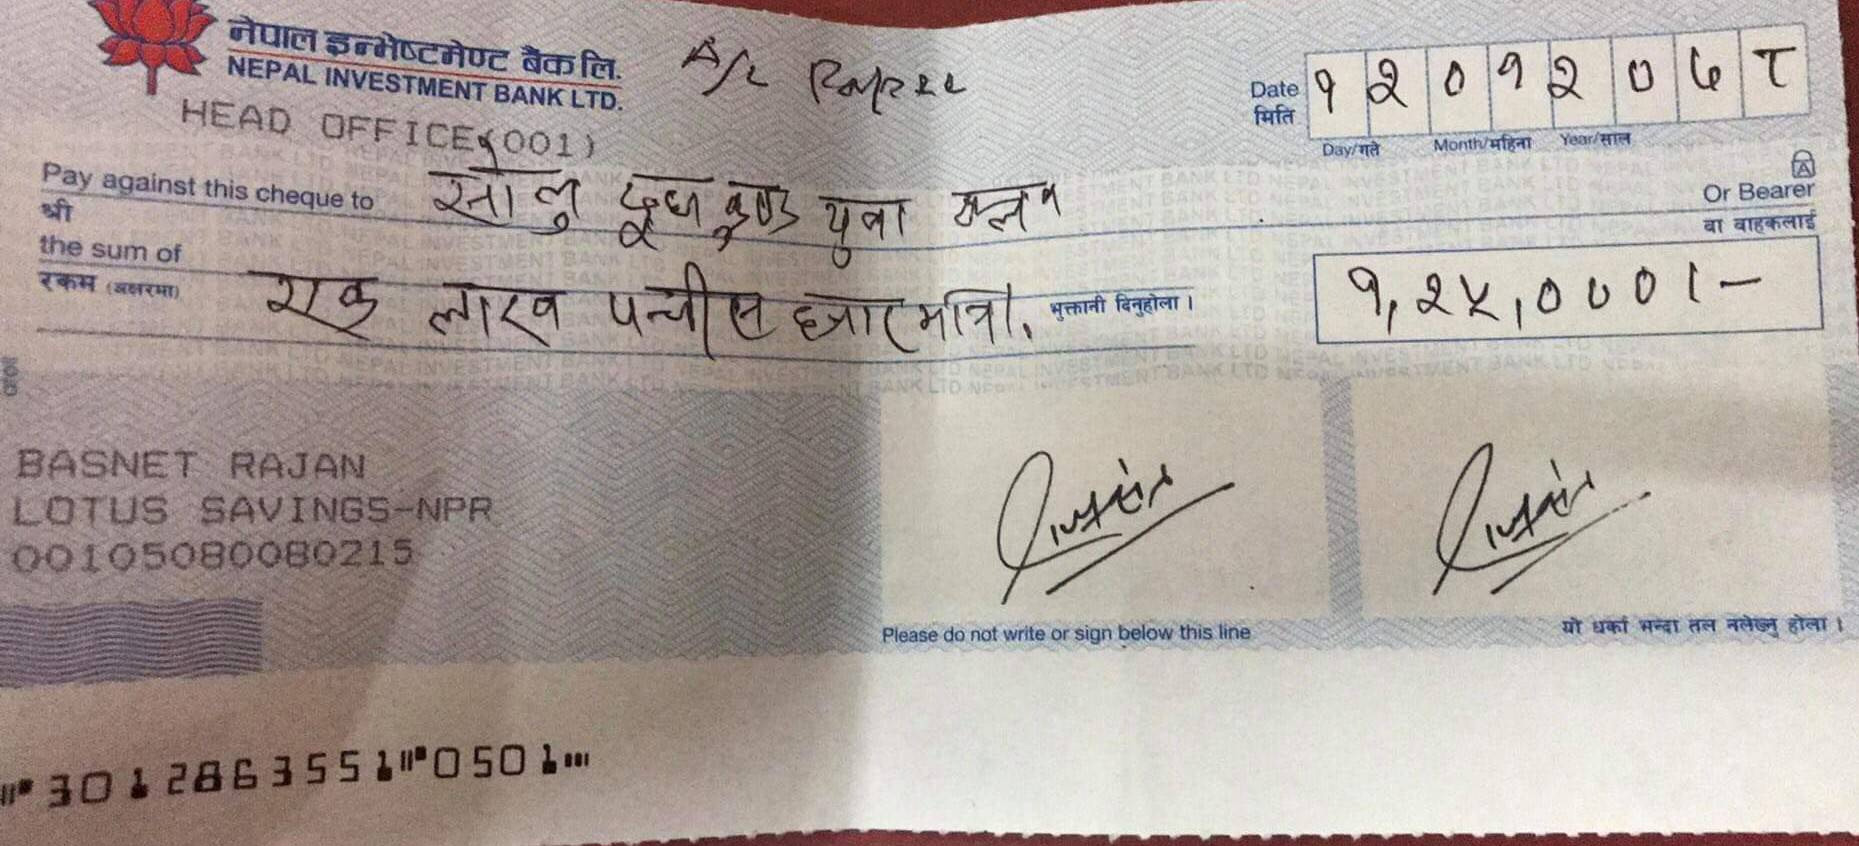 नेपाल इन्भेष्टमेण्ट बैंक लि.
NEPAL INVESTMENT BANK LTD.
HEAD OFFICE(001)
A/C Payee
Date १ २ ० १ २ ० ७ ८
मिति
Day/गते Month/महिना Year/साल
Pay against this cheque to सोलु दूधकुण्ड युवा क्लब Or Bearer
श्री वा वाहकलाई
the sum of
रकम (अक्षरमा) एक लाख पच्चीस हजार मात्र। भुक्तानी दिनुहोला । १,२५,०००।-
BASNET RAJAN
LOTUS SAVINGS-NPR
00105080080215
Please do not write or sign below this line यो धर्का भन्दा तल नलेख्नु होला ।
30128635510501